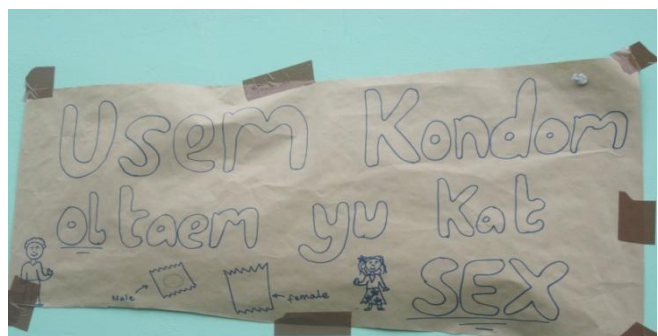 Usem Kondom
oltaem yu Kat
SEX
Male
female